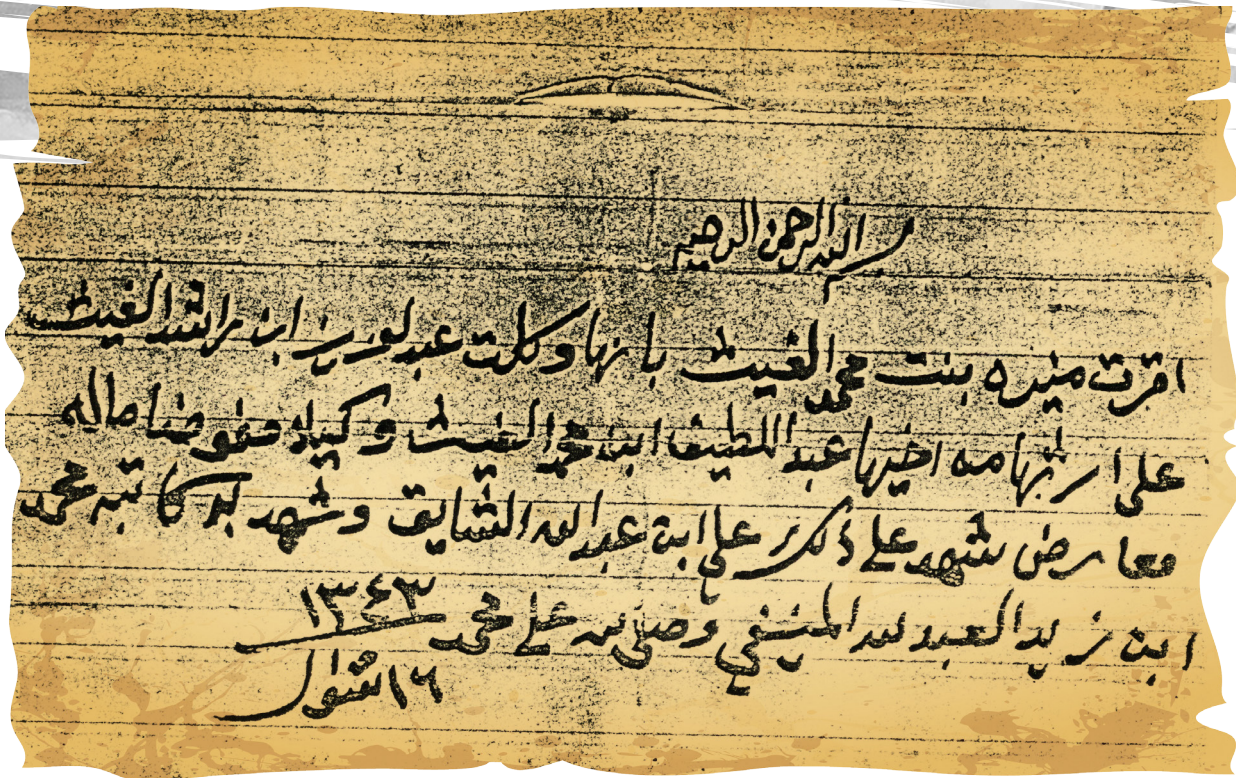 بسم الله الرحمن الرحيم
اقرت منيره بنت محمد الغيث بانها وكلت عبدلعزيز ابن راشد الغيث
على ارثها من اخيها عبد اللطيف ابن محمد الغيث وكيلاً مفوضا ماله
معارض شهد على ذلك علي ابن عبد الله الشايق وشهد به كاتبه محمد
ابن زيد العبد لله المنيفي وصلى لله على محمد
١٣٤٣
١٦ شوال